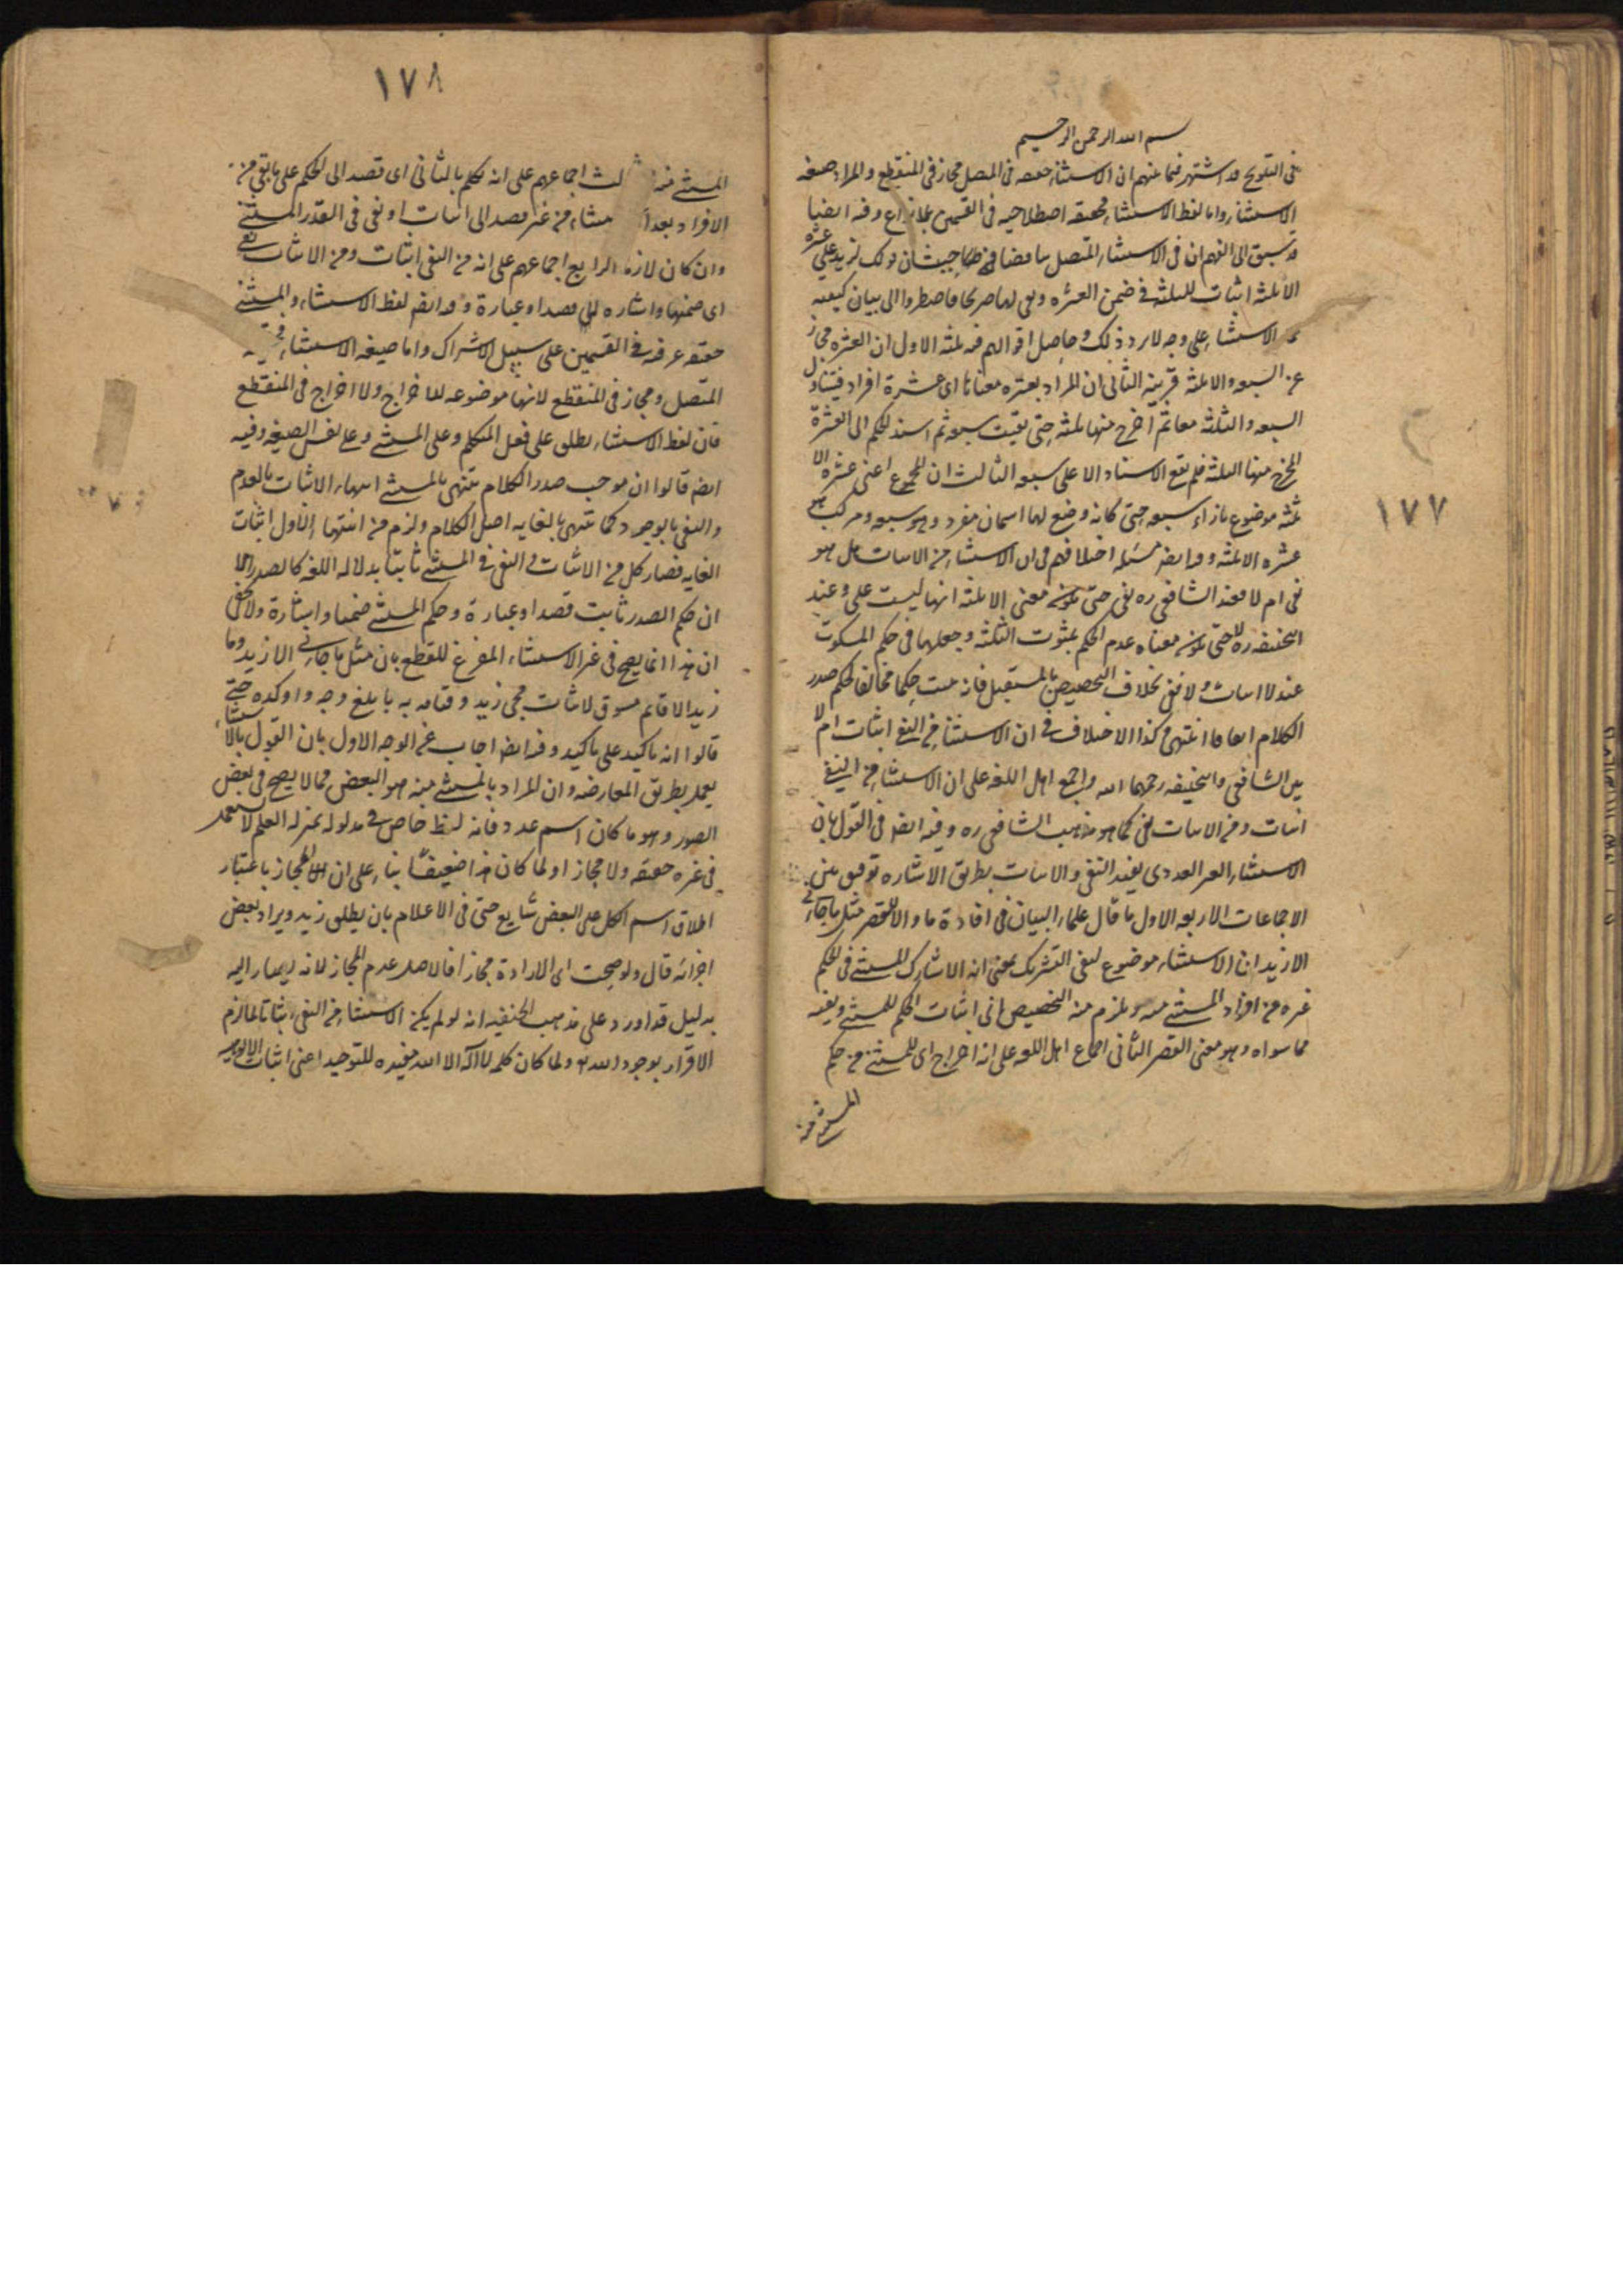 ١٧٧
بسم الله الرحمن الرحيم
في التلويح قد اشتهر فيما بينهم ان الاستثناء حقيقة في المتصل مجاز في المنقطع والمراد صيغة
الاستثناء واما لفظ الاستثناء فحقيقة اصطلاحية في القسمين بلا نزاع وفيه ايضا
قد سبق الى الفهم ان في الاستثناء المتصل تناقضا من حيث ان قولك لزيد علي عشرة
الا ثلثة اثبات للثلثة في ضمن العشرة ونفي لها صريحا فاضطروا الى بيان كيفية
الاستثناء على وجه لا يرد ذلك وحاصل اقوالهم فيه ثلثة الاول ان العشرة مجاز
عن السبعة والا ثلثة قرينة الثاني ان المراد بعشرة معناها اي عشرة افراد فيتناول
السبعة والثلثة معا ثم اخرج منها ثلثة حتى بقيت سبعة ثم اسند الحكم الى العشرة
المخرج منها الثلثة فلم يقع الاسناد الا على سبعة الثالث ان المجموع اعني عشرة الا
ثلثة موضوع بازاء سبعة حتى كانه وضع لها اسمان مفرد وهو سبعة ومركب هو
عشرة الا ثلثة وفيه ايضا مسئلة اختلافهم في ان الاستثناء من الاثبات هل هو
نفي ام لا فعند الشافعي ره نفي حتى يكون معنى الا ثلثة انها ليست علي وعند
ابيحنيفة ره لا حتى يكون معناه عدم الحكم بثبوت الثلثة وجعلها في حكم المسكوت
عنه لا اثبات ولا نفي بخلاف التخصيص بالمستقل فانه يثبت حكما مخالفا لحكم صدر
الكلام انتهى وكذا الاختلاف في ان الاستثناء من النفي اثبات ام لا
بين الشافعي وابيحنيفة رحمهما الله واجمع اهل اللغة على ان الاستثناء من النفي
اثبات ومن الاثبات نفي كما هو مذهب الشافعي ره وفيه ايضا في القول بان
الاستثناء الغير العددي يفيد النفي والاثبات بطريق الاشارة توفيق بين
الاجماعات الاربعة الاول ما قال علماء البيان في افادة ما والا للقصر مثل ما جاءني
الا زيد ان الاستثناء موضوع لنفي التشريك بمعنى انه لا يشارك المستثنى في الحكم
غيره من افراد المستثنى منه ويلزم منه التخصيص اي اثبات الحكم للمستثنى ونفيه
عما سواه وهو معنى القصر الثاني اجماع اهل اللغة على انه اخراج اي للمستثنى من حكم
المستثنى منه
١٧٨
المستثنى منه الثالث اجماعهم على انه تكلم بالثاني اي قصد الى الحكم على ما بقي من
الافراد بعد الاستثناء من غير قصد الى اثبات او نفي في القدر المستثنى
وان كان لازما الرابع اجماعهم على انه من النفي اثبات ومن الاثبات نفي
اي ضمنا واشارة لا قصدا وعبارة وفيه ايضا لفظ الاستثناء والمستثنى
حقيقة عرفية في القسمين على سبيل الاشتراك واما صيغة الاستثناء فحقيقة في
المتصل ومجاز في المنقطع لانها موضوعة للاخراج ولا اخراج في المنقطع
فان لفظ الاستثناء يطلق على فعل المتكلم وعلى المستثنى وعلى نفس الصيغة وفيه
ايضا قالوا ان موجب صدر الكلام ينتهي بالمستثنى انتهاء الاثبات بالعدم
والنفي بالوجود كما ينتهي بالغاية اصل الكلام ولزم من انتهاء الاول اثبات
الغاية فصار كل من الاثبات والنفي في المستثنى ثابتا بدلالة اللغة كالصدر الا
ان حكم الصدر ثابت قصدا وعبارة وحكم المستثنى ضمنا واشارة ولا يخفى
ان هذا انما يصح في غير الاستثناء المفرغ للقطع بان مثل ما جاءني الا زيد وما
زيد الا قائم مسوق لاثبات مجئ زيد وقيامه به بابلغ وجه واوكده حتى
قالوا انه تاكيد على تاكيد وفيه ايضا اجاب عن الوجه الاول بان القول بالاستثناء
يعمل بطريق المعارضة وان المراد بالمستثنى منه هو البعض مما لا يصح في بعض
الصور وهو ما كان اسم عدد فانه لفظ خاص في مدلوله بمنزلة العلم لا يستعمل
في غيره حقيقة ولا مجازا ولما كان هذا ضعيفا بناء على ان المجاز باعتبار
اطلاق اسم الكل على البعض شايع حتى في الاعلام بان يطلق زيد ويراد بعض
اجزائه قال ولو صحت اي الارادة مجازا فالاصل عدم المجاز لانه يصار اليه
بدليل قد اورد على مذهب الحنفية انه لو لم يكن الاستثناء من النفي اثباتا لما لزم
الاقرار بوجود الله تع ولما كان كلمة لا اله الا الله مفيدة للتوحيد اعني اثبات الالوهية